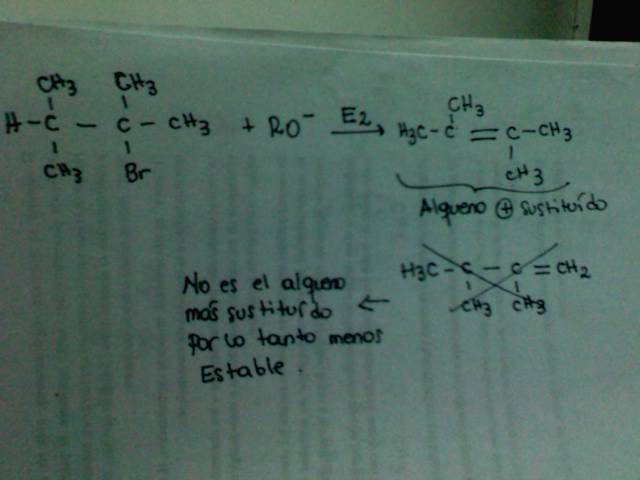 CH3 CH3
H - C - C - CH3 + RO⁻ E2 → H3C - C = C - CH3
CH3 Br
CH3
CH3
Alqueno ⊕ sustituído
H3C - C - C = CH2
CH3 CH3
No es el alqueno
más sustituído ←
por lo tanto menos
Estable.